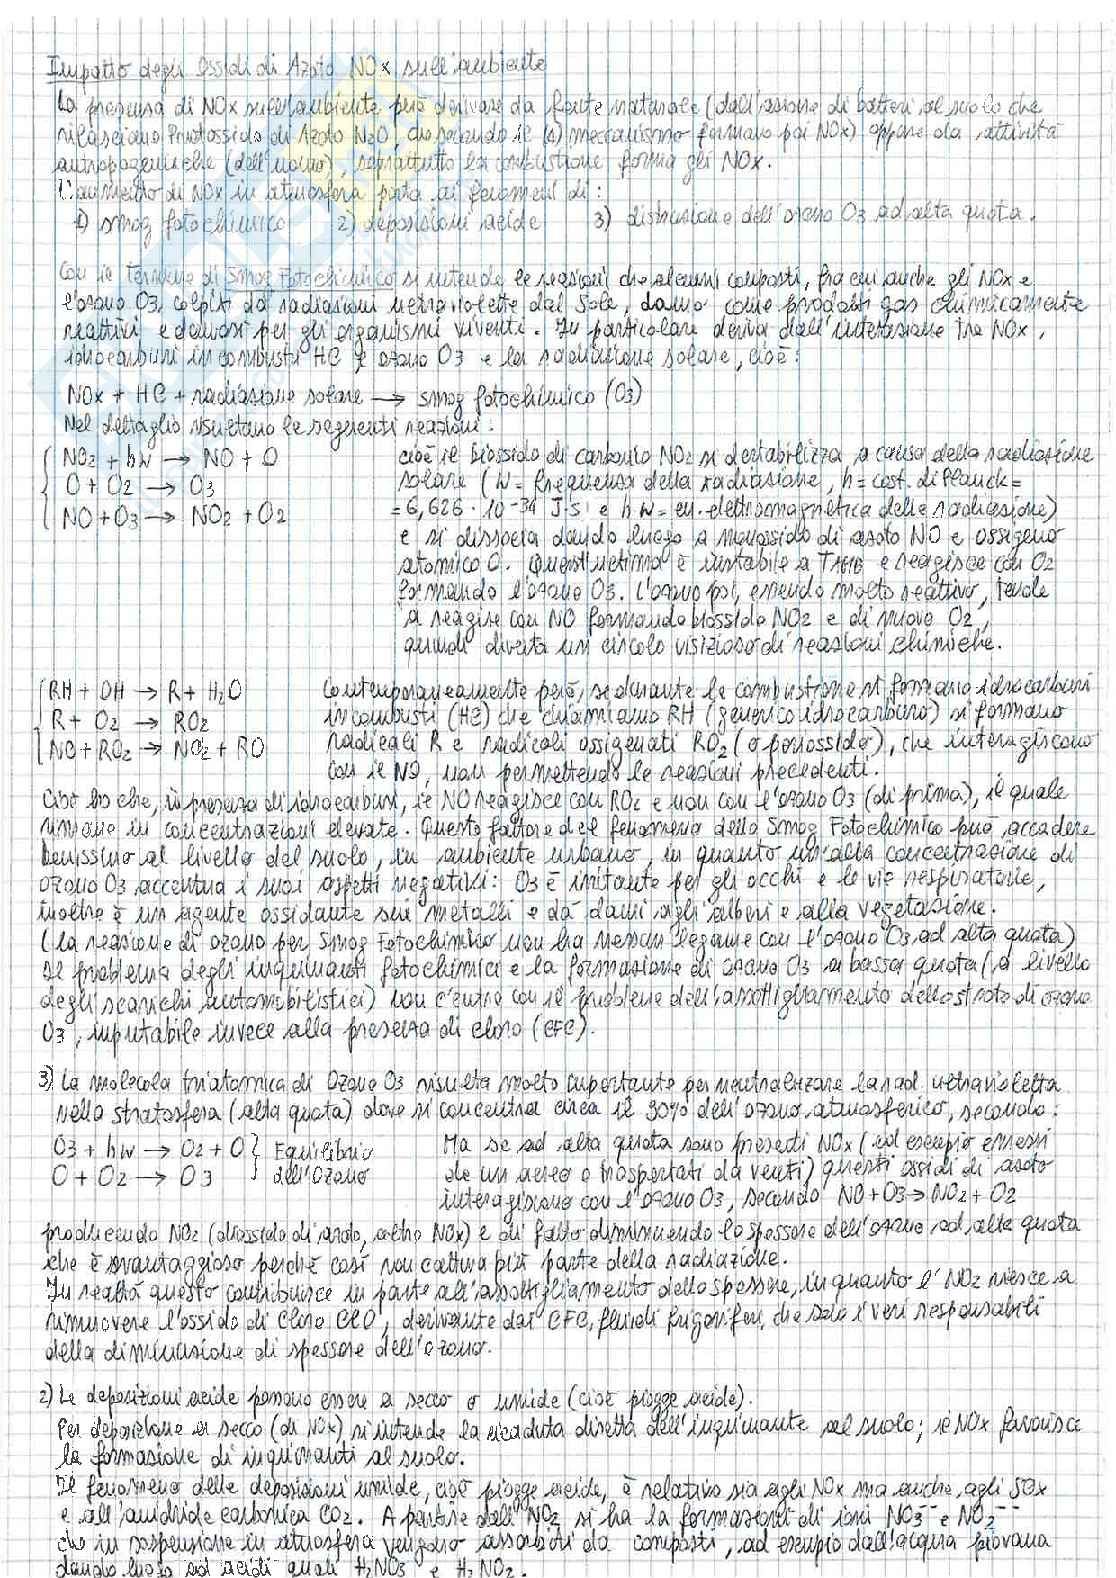 Impatto degli Ossidi di Azoto NOx sull'ambiente
La presenza di NOx sull'ambiente può derivare da fonte naturale (dall'azione di batteri al suolo che
rilasciano Protossido di Azoto N2O, che secondo il meccanismo formano poi NOx) oppure da attività
antropogeniche (dell'uomo), soprattutto la combustione forma gli NOx.
L'aumento di NOx in atmosfera porta ai fenomeni di:
1) smog fotochimico 2) deposizioni acide 3) distruzione dell'ozono O3 ad alta quota.
Con il termine di Smog Fotochimico si intende le reazioni che alcuni composti, fra cui anche gli NOx e
l'ozono O3, colpiti da radiazioni ultraviolette dal Sole, danno come prodotti gas chimicamente
reattivi e dannosi per gli organismi viventi. In particolare deriva dall'interazione tra NOx,
idrocarburi incombusti HC e ozono O3 e la radiazione solare, cioè:
NOx + HC + radiazione solare → smog fotochimico (O3)
Nel dettaglio risultano le seguenti reazioni:
NO2 + hw → NO + O
O + O2 → O3
NO + O3 → NO2 + O2
cioè il biossido di carbonio NO2 si destabilizza a causa della radiazione
solare (w = frequenza della radiazione, h = cost. di Planck =
= 6,626 · 10^-34 J·s e hw = en. elettromagnetica della radiazione)
e si dissocia dando luogo a monossido di azoto NO e ossigeno
atomico O. Quest'ultimo è instabile a TAMB e reagisce con O2
formando l'ozono O3. L'ozono poi, essendo molto reattivo, tende
a reagire con NO formando biossido NO2 e di nuovo O2,
quindi diventa un circolo vizioso di reazioni chimiche.
RH + OH → R + H2O
R + O2 → RO2
NO + RO2 → NO2 + RO
Contemporaneamente però, se durante la combustione si formano idrocarburi
incombusti (HC) che chiamiamo RH (generico idrocarburo) si formano
radicali R e radicali ossigenati RO2 (o perossido), che interagiscono
con il NO, non permettendo le reazioni precedenti.
Ciò fa che, in presenza di idrocarburi, il NO reagisce con RO2 e non con l'ozono O3 (di prima), il quale
rimane in concentrazioni elevate. Questo fattore del fenomeno dello Smog Fotochimico può accadere
benissimo al livello del suolo, in ambiente urbano, in quanto un'alta concentrazione di
ozono O3 accentua i suoi aspetti negativi: O3 è irritante per gli occhi e le vie respiratorie,
inoltre è un agente ossidante sui metalli e dà danni agli alberi e alla vegetazione.
(la reazione di ozono per Smog Fotochimico non ha nessun legame con l'ozono O3 ad alta quota)
Il problema degli inquinanti fotochimici e la formazione di ozono O3 a bassa quota (a livello
degli scarichi automobilistici) non c'entra con il problema dell'assottigliamento dello strato di ozono
O3, imputabile invece alla presenza di cloro (CFC).
3) La molecola triatomica di Ozono O3 risulta molto importante per neutralizzare la rad. ultravioletta
nella stratosfera (alta quota) dove si concentra circa il 90% dell'ozono atmosferico, secondo:
O3 + hw → O2 + O } Equilibrio
O + O2 → O3 } dell'Ozono
Ma se ad alta quota sono presenti NOx (ad esempio emessi
da un aereo o trasportati da venti) questi ossidi di azoto
interagiscono con l'ozono O3, secondo NO + O3 → NO2 + O2
producendo NO2 (diossido di azoto, altro NOx) e di fatto diminuendo lo spessore dell'ozono ad alta quota
che è svantaggioso perché così non cattura più parte della radiazione.
In realtà questo contribuisce in parte all'assottigliamento dello spessore, in quanto l'NO2 riesce a
rimuovere l'ossido di Cloro ClO, derivante dai CFC, fluidi frigoriferi, che sono i veri responsabili
della diminuzione di spessore dell'ozono.
2) Le deposizioni acide possono essere a secco o umide (cioè piogge acide).
Per deposizione a secco (di NOx) si intende la ricaduta diretta dell'inquinante al suolo; il NOx favorisce
la formazione di inquinanti al suolo.
Il fenomeno delle deposizioni umide, cioè piogge acide, è relativo sia agli NOx ma anche agli SOx
e all'anidride carbonica CO2. A partire dall'NO2 si ha la formazione di ioni NO3-- e NO2--
che in sospensione in atmosfera vengono assorbiti da composti, ad esempio dall'acqua piovana
dando luogo ad acidi quali H2NO3 e H2NO2.